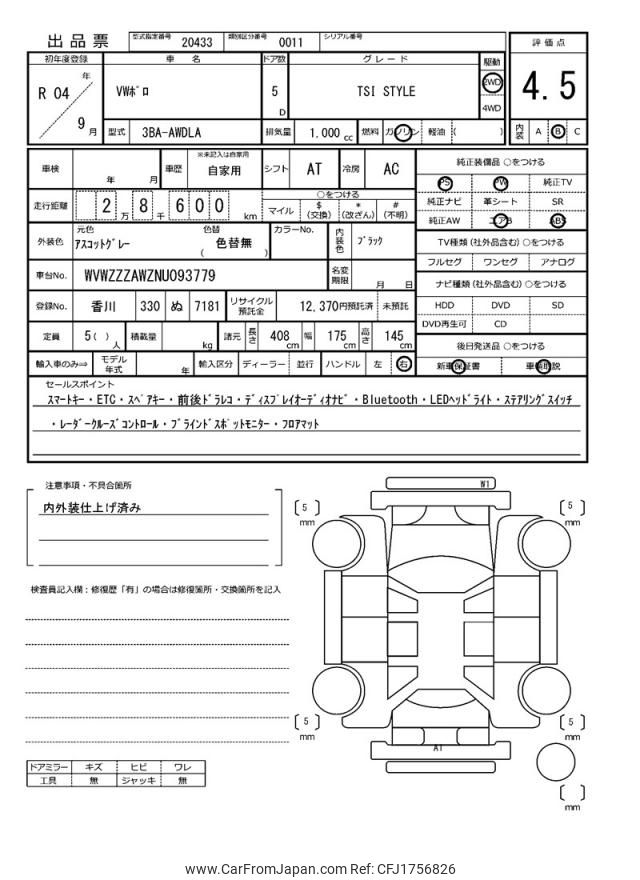 出品票 型式指定番号 20433 類別区分番号 0011 シリアル番号
初年度登録 車名 ドア数 グレード 駆動 評価点
R 04 年 9 月 VWﾎﾟﾛ 5 D TSI STYLE 2WD 4WD 4.5
型式 3BA-AWDLA 排気量 1.000 cc 燃料 ガソリン 軽油 ( ) 内装 A B C
車検 年 月 車歴 ※未記入は自家用 自家用 シフト AT 冷房 AC
走行距離 2 万 8 千 6 0 0 km ○をつける マイル $ (交換) * (改ざん) # (不明)
外装色 元色 ｱｽｺｯﾄｸﾞﾚｰ 色替 ( 色替無 ) カラーNo. 内装色 ﾌﾞﾗｯｸ
車台No. WVWZZZAWZNU093779 名変期限 月 日
登録No. 香川 330 ぬ 7181 リサイクル預託金 12,370円預託済 未預託
定員 5( ) 人 積載量 kg 諸元 長さ 408 cm 幅 175 cm 高さ 145 cm
輸入車のみ⇒ モデル年式 年 輸入区分 ディーラー 並行 ハンドル 左 右
純正装備品 ○をつける
PS PW 純正TV
純正ナビ 革シート SR
純正AW エアB ABS
TV種類(社外品含む)○をつける
フルセグ ワンセグ アナログ
ナビ種類(社外品含む)○をつける
HDD DVD SD
DVD再生可 CD
後日発送品 ○をつける
新車保証書 車輌取説
セールスポイント
スマートキー・ETC・スペアキー・前後ドラレコ・ディスプレイオーディオナビ・Bluetooth・LEDヘッドライト・ステアリングスイッチ
・レーダークルーズコントロール・ブラインドスポットモニター・フロアマット
注意事項・不具合箇所
内外装仕上げ済み
検査員記入欄：修復歴「有」の場合は修復箇所・交換箇所を記入
W1
[ 5 ] mm [ 5 ] mm
[ 5 ] mm [ 5 ] mm
A1
[ ] mm
ドアミラー キズ ヒビ ワレ
工具 無 ジャッキ 無
www.CarFromJapan.com Ref: CFJ1756826